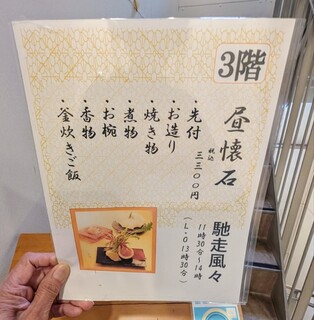 3階
昼懐石
税込
三三〇〇円
・先付
・お造り
・焼き物
・煮物
・お椀
・香物
・釜炊きご飯
馳走風々
11時30分〜14時
（L・O13時30分）